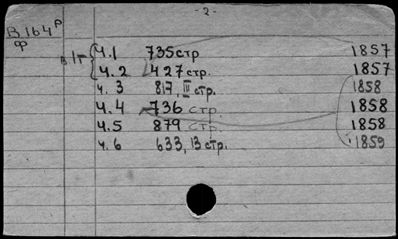 - 2 -
В 164 р
ф
в/г
ч. 1 735 стр 1857
ч. 2 427 стр. 1857
ч. 3 817, III стр. 1858
ч. 4 736 стр. 1858
ч. 5 879 стр. 1858
ч. 6 633, 13 стр. 1859